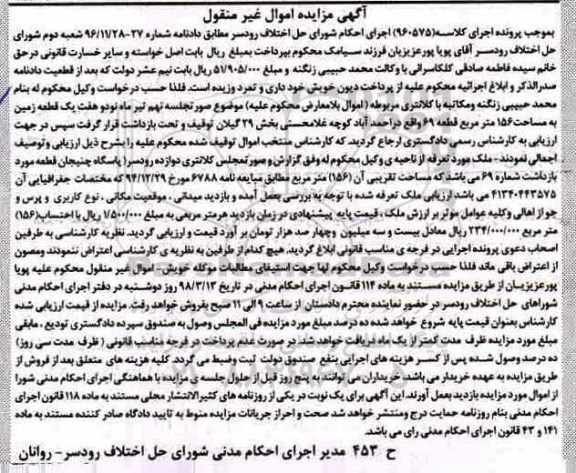 آگهی مزایده اموال غیر منقول
بموجب پرونده اجرای کلاسه(۹۶۰۵۷۵) اجرای احکام شورای حل اختلاف رودسر مطابق دادنامه شماره ۲۷-۹۶/۱۱/۲۸ شعبه دوم شورای
حل اختلاف رودسر آقای پویا پورعزیزیان فرزند سیامک محکوم بپرداخت بمبلغ ریال بابت اصل خواسته و سایر خسارت قانونی در حق
خانم سیده فاطمه صادقی کلکاسرائی با وکالت محمد حبیبی زنگنه و مبلغ ۵۱/۹۰۵/۰۰۰ ریال بابت نیم عشر دولت که بعد از قطعیت دادنامه
صدرالذکر و ابلاغ اجرائیه محکوم علیه از پرداخت دیون خویش خود داری و تمرد وزیده است. فلذا حسب درخواست وکیل محکوم له بنام
محمد حبیبی زنگنه ومکاتبه با کلانتری مربوطه (اموال بلامعارض محکوم علیه) موضوع صورتجلسه نهم تیر ماه نودو هفت یک قطعه زمین
به مساحت ۱۵۶ متر مربع قطعه ۶۹ واقع در احمد آباد کوچه غلامحسنی بخش ۲۹ گیلان توقیف و تحت بازداشت قرار گرفت سپس در جهت
ارزیابی به کارشناس رسمی دادگستری ارجاع گردید که کارشناس منتخب اموال توقیف شده محکوم علیه را بشرح ذیل ارزیابی و توصیف
اجمالی نمودند- ملک مورد تعرفه از ناحیه ی وکیل محکوم له وفق گزارش و صورتمجلس کلانتری دوازده رودسر( پاسگاه چنیجان قطعه مورد
بازداشت شماره ۶۹ می باشد که مساحت تقریبی آن (۱۵۶) متر مربع مطابق مبایعه نامه ۶۷۸۸ مورخ ۹۴/۱۲/۲۹ که مختصات جغرافیایی آن
۴۱۳۴۰۴۴۳۵۷۵ می باشد، ارزیابی ملک تعرفه شده با توجه به بررسی بعمل آمده و بازدید میدانی ، موقعیت مکانی ، نوع کاربری و پرس و
جو از اهالی وکلیه عوامل موثر بر ارزش ملک ، قیمت پایه پیشنهادی در زمان بازدید هرمتر مربعی به مبلغ ۱/۵۰۰/۰۰۰ ریال با احتساب(۱۵۶)
متر مربع ۲۳۴/۰۰۰/۰۰۰ ریال معادل بیست و سه میلیون وچهار صد هزار تومان بر آورد قیمت و ارزیابی گردید. نظریه کارشناسی به طرفین
اصحاب دعوی پرونده اجرایی در فرجه ی مناسب قانونی ابلاغ گردید. هیچ کدام از طرفین به نظریه ی کارشناسی اعتراض ننمودند ومصون
از اعتراض باقی ماند فلذا حسب درخواست وکیل محکوم لها جهت استیفای مطالبات موکله خویش- اموال غیر منقول محکوم علیه پویا
پورعزیزیان از طریق مزایده مستند به ماده ۱۱۴ قانون اجرای احکام مدنی در تاریخ ۹۸/۳/۱۳ روز دوشنبه در دفتر اجرای احکام مدنی
شوراهای حل اختلاف رودسر در حضور نماینده محترم دادستان از ساعت ۹ الی ۱۱ صبح بفروش خواهد رفت. مزایده از قیمت ارزیابی شده
کارشناس بعنوان قیمت پایه شروع خواهد شد ده درصد مبلغ مورد مزایده فی المجلس وصول به صندوق سپرده دادگستری تودیع ، مابقی
مبلغ مورد مزایده ظرف مدت کمتر از یک ماه دریافت خواهد شد. در صورت عدم پرداخت در فرجه مناسب قانونی ( ظرف مدت سی روز)
ده درصد وصول شده پس از کسر هزینه های اجرایی بنفع صندوق دولت ثبت وضبط می گردد. کلیه هزینه های متعلق بعد از فروش از
طریق مزایده به عهده خریدار می باشد. خریداران می توانند به پنج روز قبل از حلول جلسه ی مزایده با هماهنگی اجرای احکام مدنی شورا
از اموال مورد مزایده بازدید بعمل آورند. این آگهی برای یک نوبت در یکی از روزنامه های کثیرالانتشار محلی مستند به ماده ۱۱۸ قانون اجرای
احکام مدنی بنام روزنامه حمایت درج ومنتشر خواهد شد صحت و احراز جریانات مزایده منوط به تایید دادگاه صادر کننده مستند به ماده
۱۴۱ و ۴۳ قانون اجرای احکام مدنی رای می باشد.
ح ۴۵۳ مدیر اجرای احکام مدنی شورای حل اختلاف رودسر- روانان